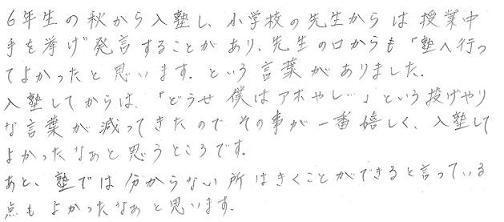 6年生の秋から入塾し、小学校の先生からは授業中
手を挙げ発言することがあり、先生の口からも「塾へ行っ
てよかったと思います。という言葉がありました。
入塾してからは、「どうせ僕はアホやし…」という投げやり
な言葉が減ってきたのでその事が一番嬉しく、入塾して
よかったなぁと思うところです。
あと、塾では分からない所はきくことができると言っている
点もよかったなぁと思います。